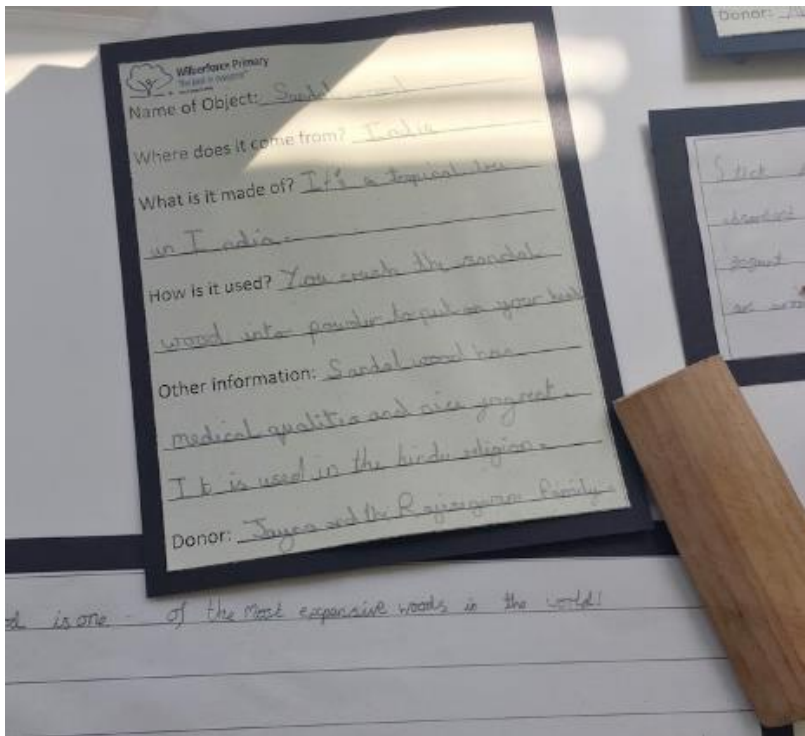 Donor:
Wilberforce Primary
Name of Object: Sandal wood
Where does it come from? India
What is it made of? It's a tropical tree
in India.
How is it used? You crush the sandal
wood into powder to put on your
Other information: Sandal wood has
medical qualities and nice
It is used in the hindu religion.
Donor: and the family
Stick
is one of the most expensive woods in the world!